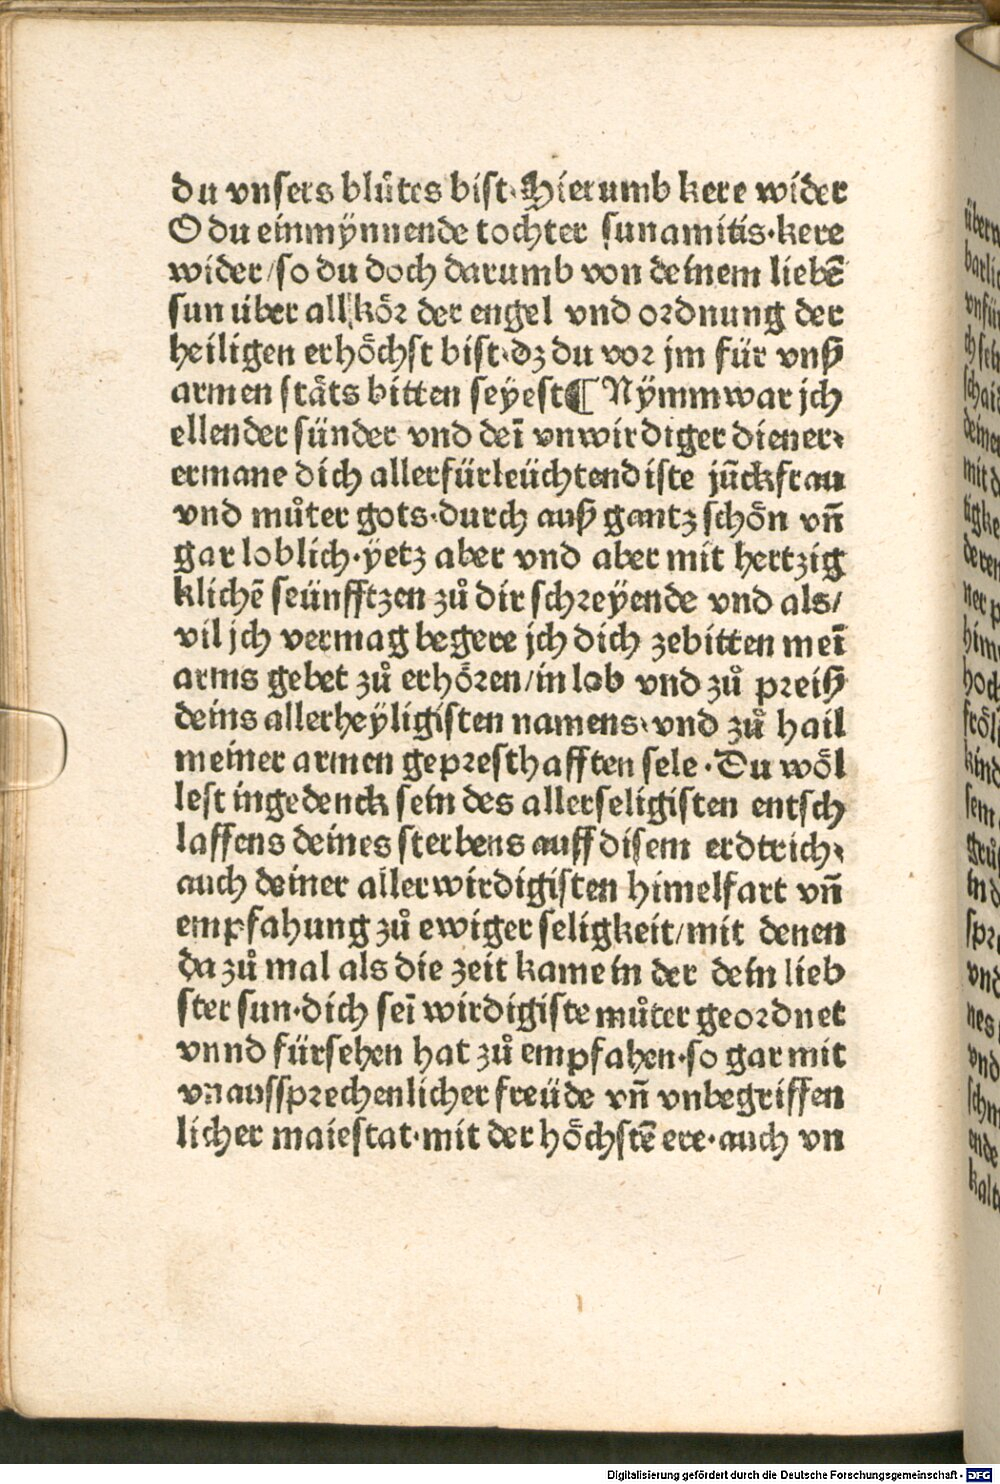 du vnsers blůtes bist·Hierumb kere wider
O du einmÿnnende tochter sunamitis·kere
wider/so du doch darumb von deinem liebē
sun über all kör der engel vnd ordnung der
heiligen erhöchst bist·dz du vor jm für vnß
armen stäts bitten seÿest¶ Nÿmm war jch
ellender sünder vnd deī vnwirdiger diener·
ermane dich allerfürleüchtendiste jūckfrau
vnd můter gots·durch auß gantz schön vn̄
gar loblich·ÿetz aber vnd aber mit hertzig
klichē seünfftzen zů dir schreÿende vnd als/
vil jch vermag begere jch dich zebitten meī
arms gebet zů erhören/in lob vnd zů preiß
deins allerheÿligisten namens·vnd zů hail
meiner armen gepresthafften sele·Du wöl
lest ingedenck sein des allerseligisten entsch
laffens deines sterbens auff disem erdtrich·
auch deiner allerwirdigisten himelfart vn̄
empfahung zů ewiger seligkeit/mit denen
da zů mal als die zeit kame in der dein lieb
ster sun·dich seī wirdigiste můter geordnet
vnnd fürsehen hat zů empfahen·so gar mit
vnaussprechenlicher freüde vn̄ vnbegriffen
licher maiestat·mit der höchstē ere·auch vn
Digitalisierung gefördert durch die Deutsche Forschungsgemeinschaft - DFG